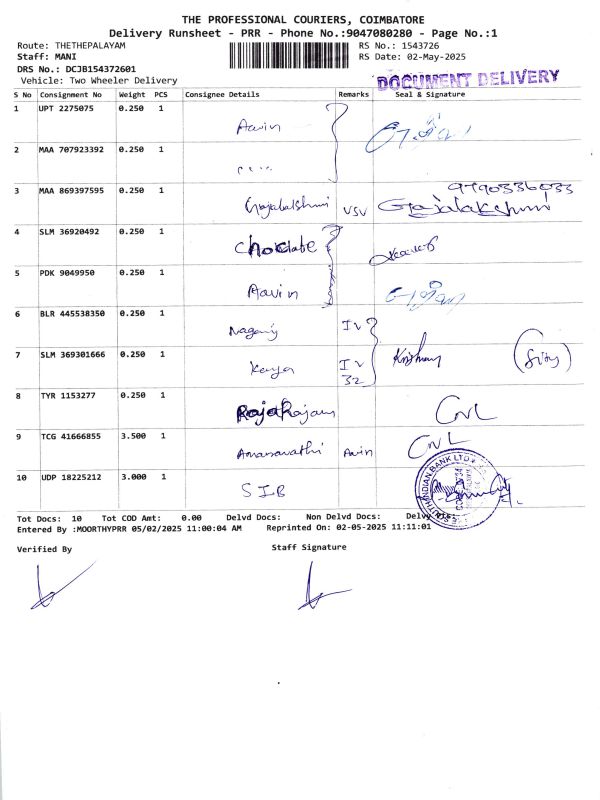 THE PROFESSIONAL COURIERS, COIMBATORE
Delivery Runsheet - PRR - Phone No.:9047080280 - Page No.:1
Route: THETHEPALAYAM RS No.: 1543726
Staff: MANI RS Date: 02-May-2025
DRS No.: DCJB154372601
Vehicle: Two Wheeler Delivery DOCUMENT DELIVERY
S No Consignment No Weight PCS Consignee Details Remarks Seal & Signature
1 UPT 2275075 0.250 1 Aavin
2 MAA 707923392 0.250 1
3 MAA 869397595 0.250 1 Gajalakshmi VSV 9790336033 Gajalakshmi
4 SLM 36920492 0.250 1 Choclate
5 PDK 9049950 0.250 1 Aavin
6 BLR 445538350 0.250 1 IV
7 SLM 369301666 0.250 1 IV 32
8 TYR 1153277 0.250 1 Rajarajan CNL
9 TCG 41666855 3.500 1 Amaravathi Aavin CNL
10 UDP 18225212 3.000 1 SIB
SOUTH INDIAN BANK LTD
Tot Docs: 10 Tot COD Amt: 0.00 Delvd Docs: Non Delvd Docs:
Entered By :MOORTHYPRR 05/02/2025 11:00:04 AM Reprinted On: 02-05-2025 11:11:01
Verified By Staff Signature